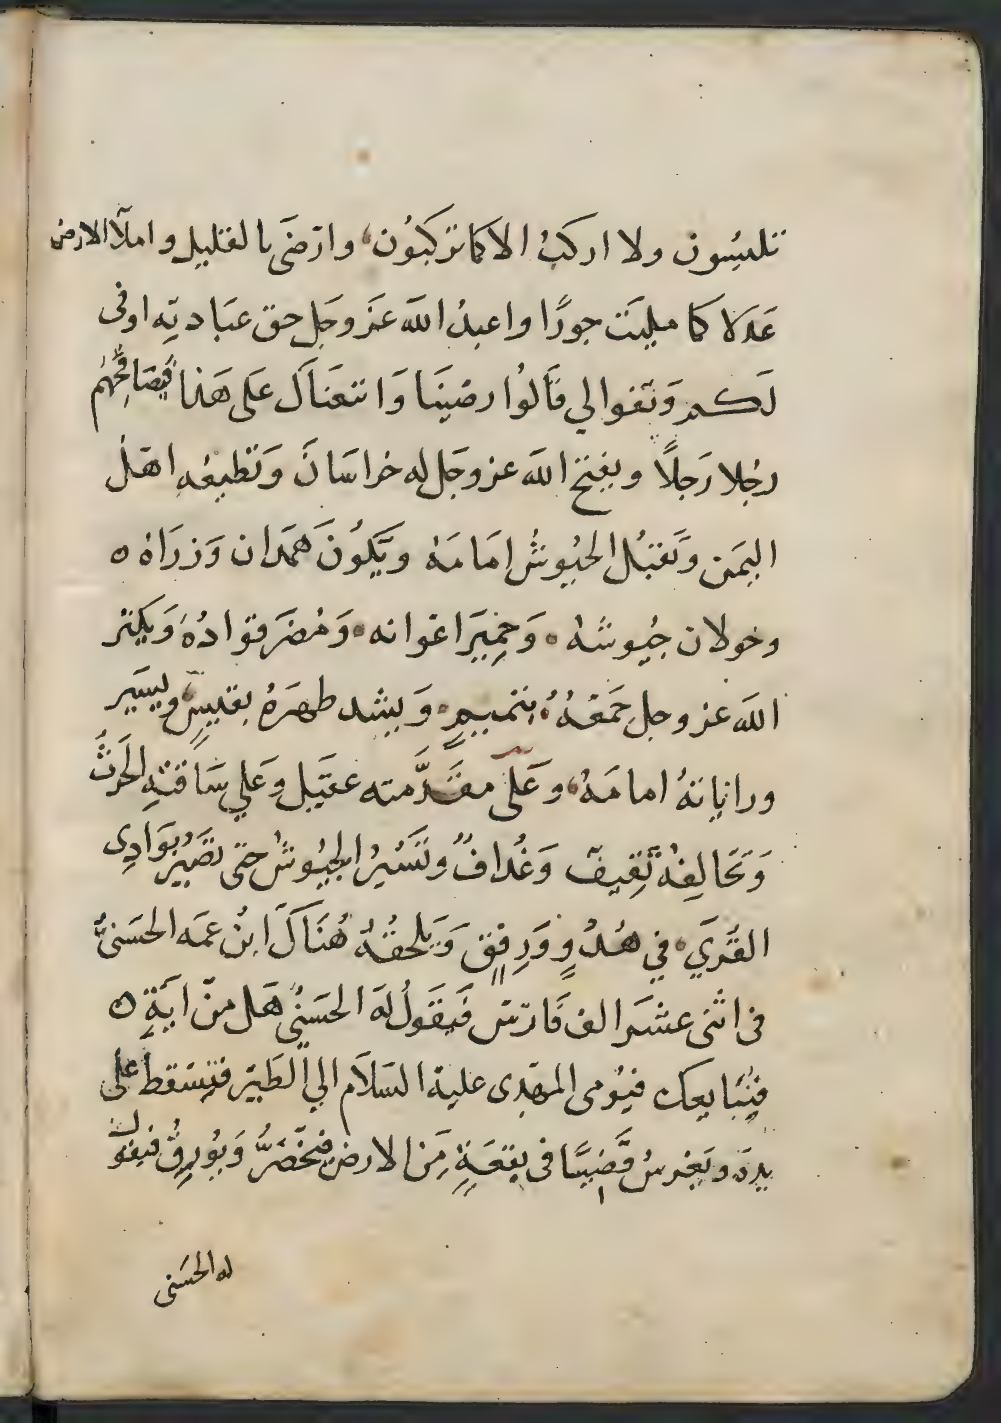 تلبسون ولا اركب الا كما تركبون وارضى بالقليل واملأ الارض
عدلا كما مليت جورًا واعبد الله عز وجل حق عبادته اوفى
لكم وتفوا لي قالوا رضينا واتبعناك على هذا فيصافحهم
رجلا رجلًا ويفتح الله عز وجل له خراسان وتطيعه اهل
اليمن وتقبل الجيوش امامه ويكون همدان وزراه ه
وخولان جيوشه وحمير اعوانه ومضر قواده ويكثر
الله عز وجل جمعه بتميم ويشد ظهره بقيس ويسير
وراياته امامه وعلى مقدمته عقيل وعلي ساقته الحرث
وتحالفه ثقيف وغداف وتسير الجيوش حتى تصير بوادي
القرى في هدو ورفق ويلحقه هناك ابن عمه الحسني
في اثنى عشر الف فارس فيقول له الحسني هل من اية ه
فنبايعك فيومى المهدى عليه السلام الي الطير فتسقط على
يده ويغرس قضيبًا في بقعة من الارض فيخضر ويورق فيقول
له الحسنى